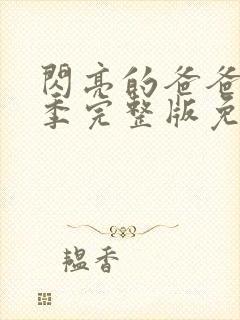 閃亮的爸爸
季完整版免
韞香